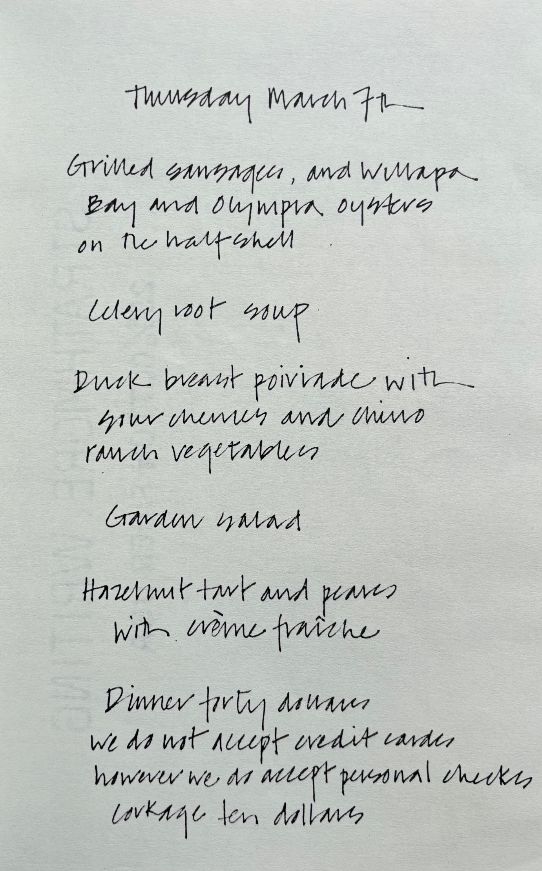 Thursday March 7th
Grilled sausages, and Willapa
Bay and Olympia oysters
on the half shell
Celery root soup
Duck breast poivrade with
sour cherries and chino
ranch vegetables
Garden salad
Hazelnut tart and pears
with crème fraîche
Dinner forty dollars
we do not accept credit cards
however we do accept personal checks
corkage ten dollars